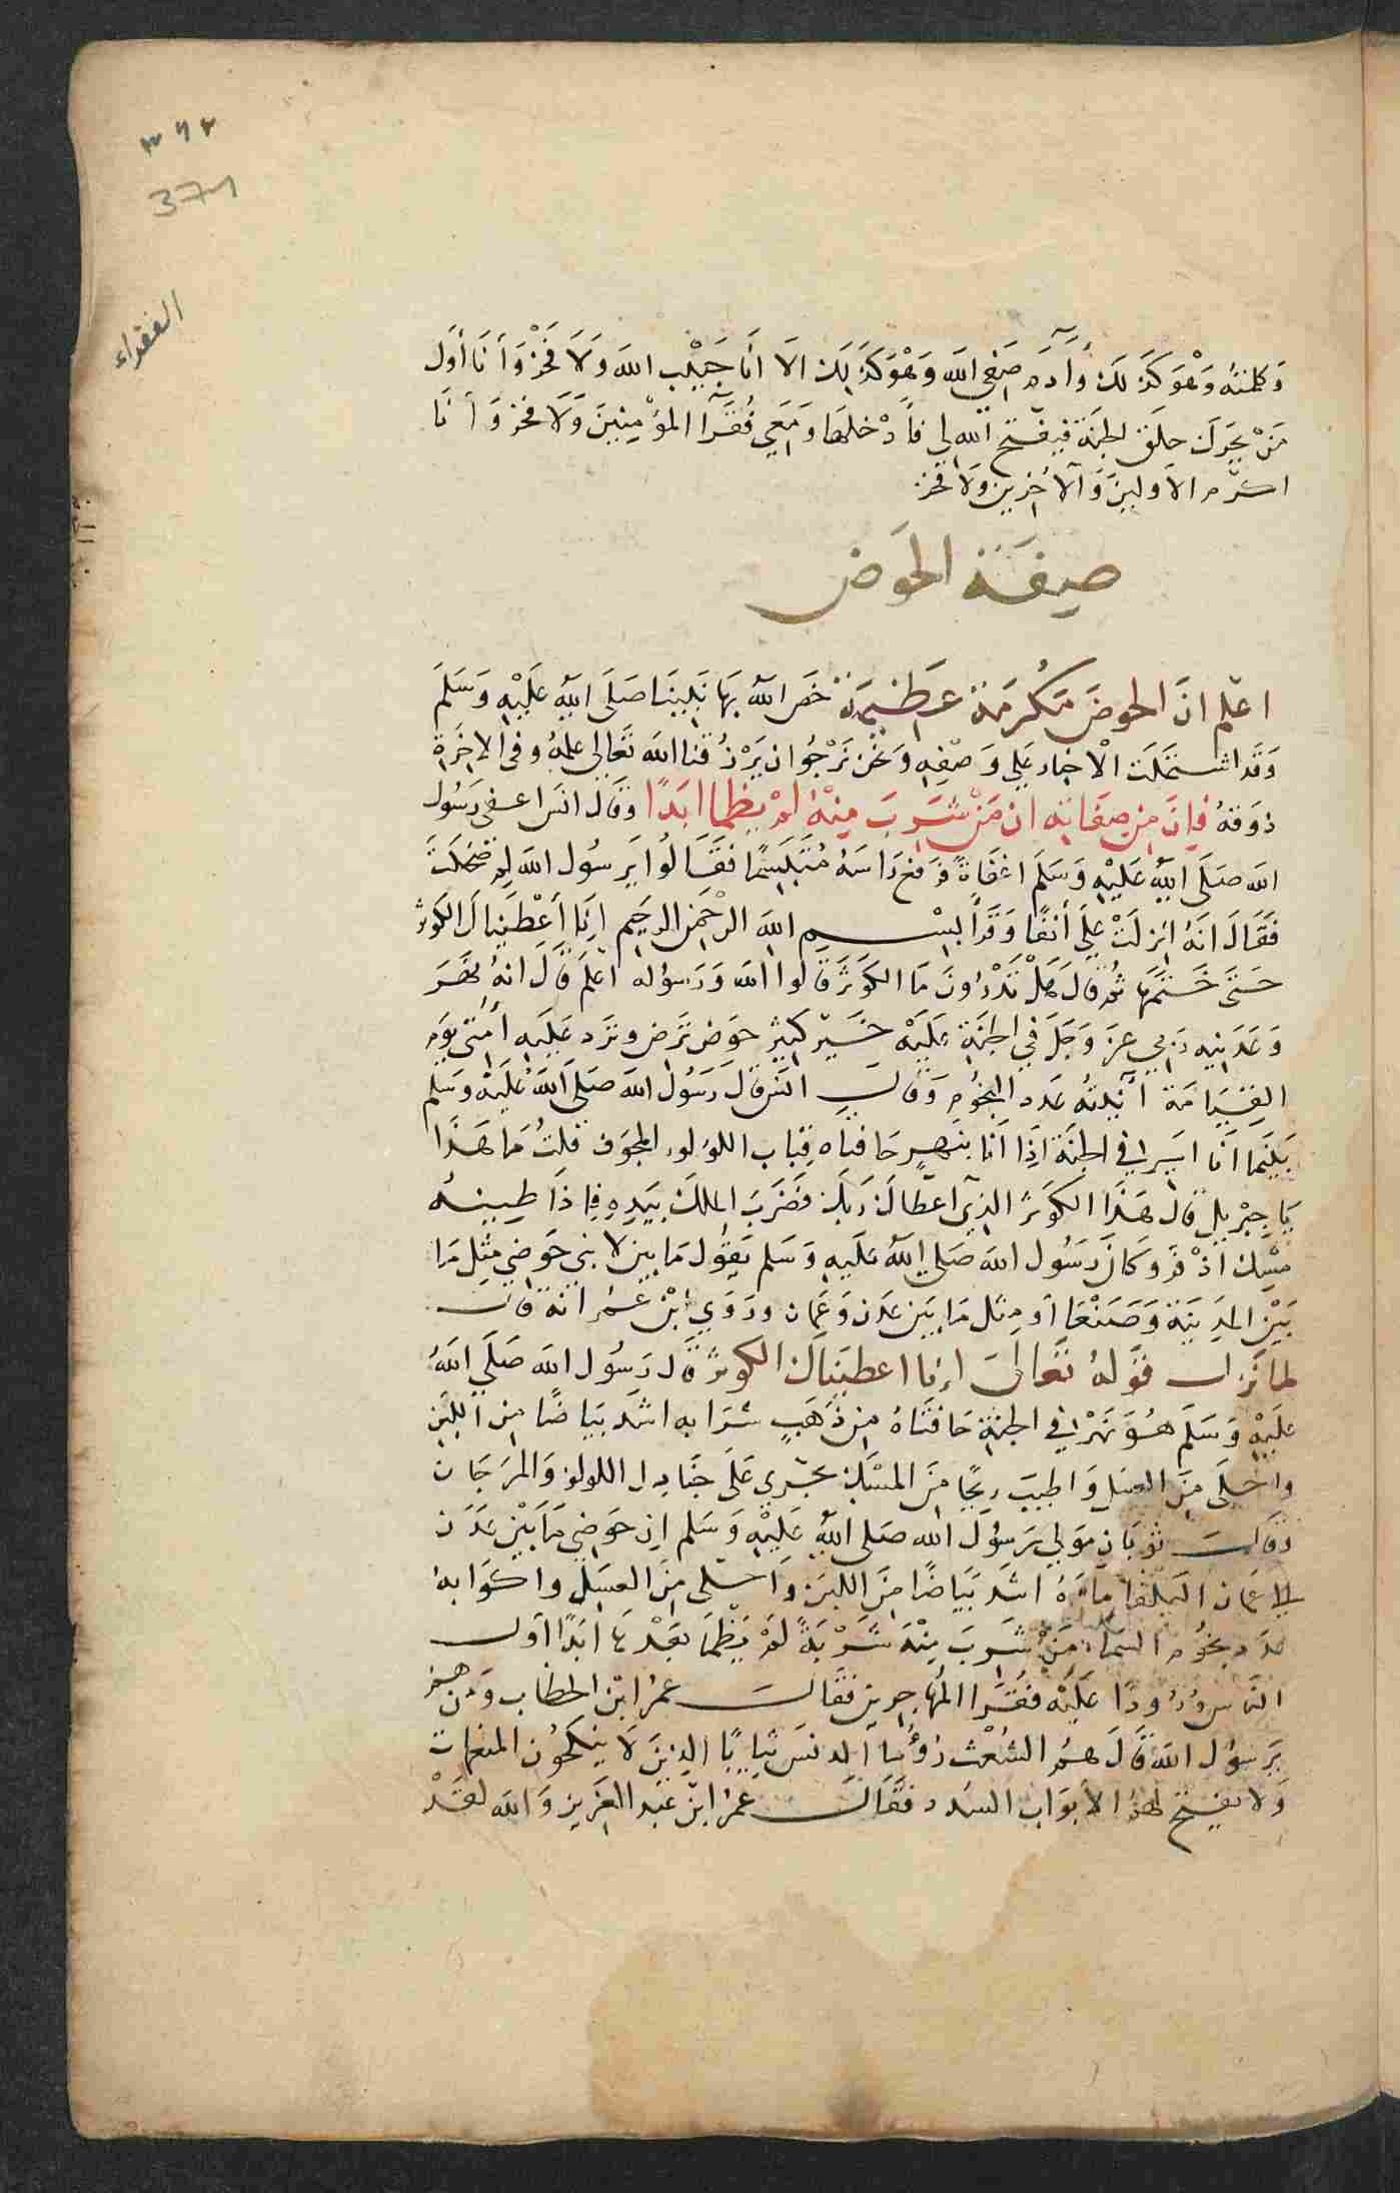 ٣٧١
371
الفقراء
وَكلمتهُ وَهُوَ كَذَلكَ وَآدَمَ صَفي الله وَهُوَ كَذَلِكَ الَا انَا حَبيْب الله وَلَا فَخْرْ وَأنَا أوَل
مَنْ يحَركَ حلَق الجنة فيفتح الله لي فأدْخلهَا وَمَعَي فُقَرَآ المؤْمِنِينَ وَلَا فخر وَأنَا
اكرَم الأولينَ وَالآخرين وَلَا فخر
صِفَة الحَوَض
اعلم انَ الحوضَ مَكُرمَة عَظِيمَة خصَ الله بهَا نَبيِنَا صَلَى اللهُ عَلَيْهِ وَسَلَمَ
وَقَد اشتملَت الْاخبار عَلي وَصْفِهِ وَنَحن نَرْجُو ان يَرْزُقنا الله تَعَالى علمهُ وفى الاخِرَة
ذوَقهُ فإِنَ مِن صفَاته ان مَنْ شَرِبَ مِنْهُ لمْ يظما ابَدًا وَقَالَ انَس اغفى رَسُول
الله صَلَى اللهُ عَلَيْهِ وَسَلَمَ اغفَاةً فرَفع رَاسَهُ مُتَبَسِمًا فقَالُوا يَرسُول الله لِمَ ضحكتَ
فَقَالَ انَهُ انزلَتْ عَلَي أنفًا وَقَرَأ بسْم الله الرَحْمَن الرحَيم إنَا أعْطَينَاكَ الكَوثر
حَتىَ خَتَمَهَا ثمُ قالَ هَلْ تَدْرُونَ مَا الكَوَثَر قَالوا الله وَرَسوُله اعْلَم قَالَ انهُ نهَرَ
وَعَدَنيِه رَبي عزَ وَجَلَ في الجنَةِ عَلَيْه خَيْر كَثِير حوَض تَرض وترَد عَلَيَه أمتى يَوم
القِيَامَة آنيتهُ عَدد النجُوم وَقالَ انَس قالَ رَسُول الله صَلَى اللهُ عَلَيه وَسَلم
بَينَما انَا اسَير في الجنَة اذَا أنَا بنَهرٍ حَافتَاه قبَاب اللوُلوء المجوَف قلتُ مَا هَذَا
يَا جِبْريل قالَ هَذَا الكَوثر الذِي اعطاكَ رَبكَ فضَرَبَ الملكَ بيَدِهِ فإذَا طِينهُ
مَسْك أذْفر وَكانَ رَسُول الله صَلى اللهُ عَلَيهِ وَسَلم يَقوُل مَا بين لابتى حَوضي مثل مَا
بَيْن المدِينَة وَصَنْعَا أو مِثل مَا بَيَن عَدَن وَعَمان ورَوَي ابْن عمُر انهُ قالَ
لما نَزل قوَلهُ تعَالىَ إنَا اعطينَاكَ الكوثر قالَ رَسوُل الله صَلَى اللهُ
عَلَيْهِ وَسَلَم هُوَ نَهرْ في الجنة حَافتَاهُ مِن ذهَبٍ شرَابه اشَد بيَاضًا من اللبَن
واحَلَى مِنَ العسَل وَاطيبَ ريحًا مِنَ المسْك يجرْي عَلَى جنَادِل اللولؤ وَالمرَجَان
وَقَالَ ثوْبَان مَوَلي رَسوُل الله صَلى اللهُ عَليْهِ وَسَلم ان حَوَضِي مَا بَيْن عَدَن
إلا عمَان البَلقَا مَاؤهُ اشَد بَيَاضًا مِنَ اللبَن وَاحَلى مِنَ العسَل واكوَابهُ
عدَد نجوُم السمَا مَنْ شَرِبَ مِنْهَ شَرْبَةً لَمْ يَظمَا بَعْدَهَا ابَدًا أوَل
النَاس وُرُودًا عَلَيْه فقُرَا المُهَاجِرين فقَالَ عمرُ ابْن الخطَاب وَمَن هم
يَرسوُل الله قَالَ هُم الشُعْث رُؤسًا الدنس ثيَابًا الذِينَ لَا ينكحُون المنعمات
وَلَا تفتح لهمُ الأبوَاب السُدَد فقَالَ عمرُ ابْن عَبْد العَزيز وَالله لقدْ